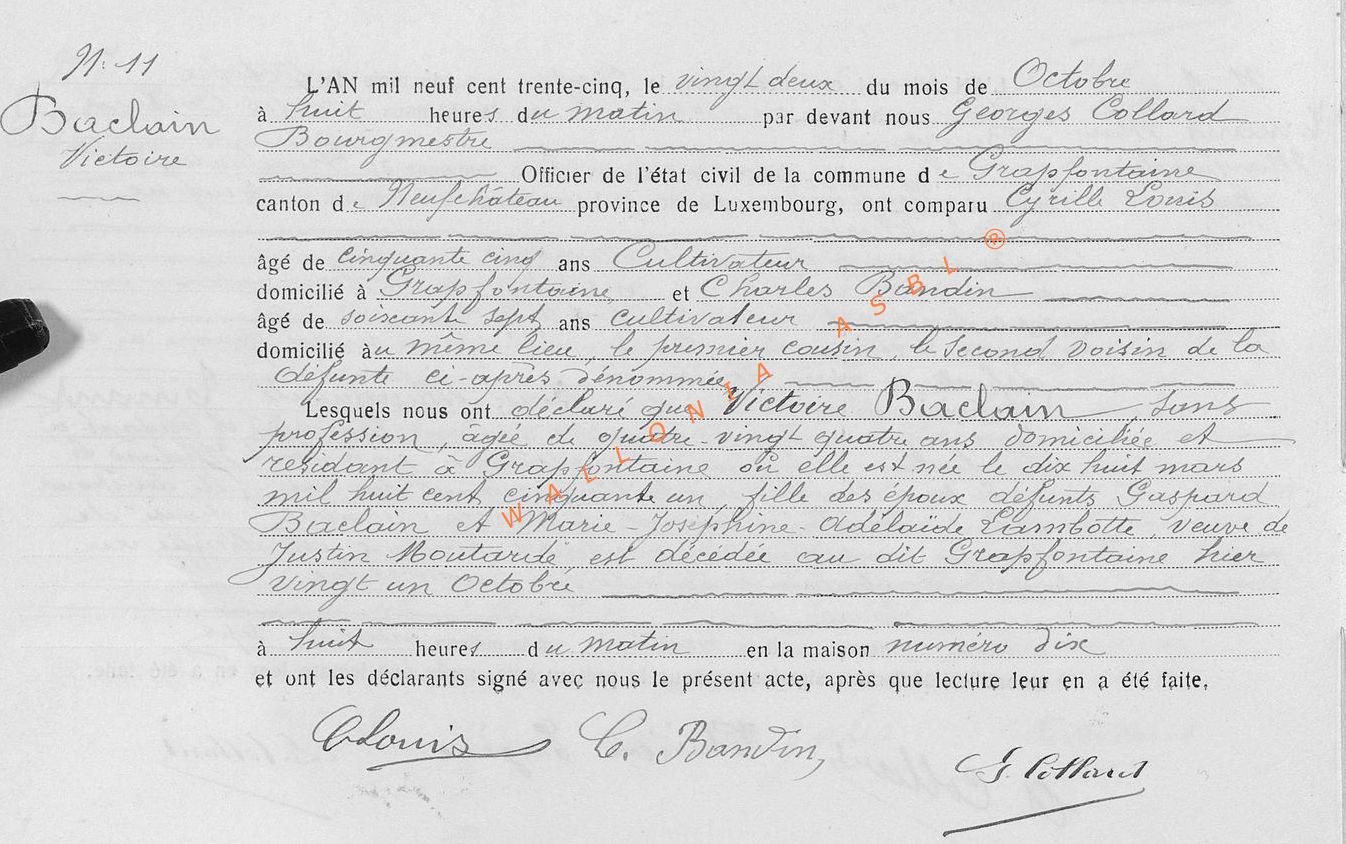 N. 11
Baclain
Victoire
L'AN mil neuf cent trente-cinq, le vingt deux du mois de Octobre
à huit heures du matin par devant nous Georges Collard
Bourgmestre
Officier de l'état civil de la commune de Grapfontaine
canton de Neufchâteau province de Luxembourg, ont comparu Cyrille Louis
âgé de cinquante cinq ans Cultivateur
domicilié à Grapfontaine et Charles Bandin
âgé de soixante sept ans cultivateur
domicilié àu même lieu, le premier cousin, le second voisin de la
défunte ci-après dénommée
Lesquels nous ont déclaré que Victoire Baclain, sans
profession, âgée de quatre-vingt quatre ans domiciliée et
résidant à Grapfontaine où elle est née le dix huit mars
mil huit cent cinquante un, fille des époux défunts Gaspard
Baclain et Marie-Joséphine-Adélaïde Lambotte, veuve de
Justin Moutarde est décédée au dit Grapfontaine hier
vingt un Octobre
à huit heures du matin en la maison numéro dix
et ont les déclarants signé avec nous le présent acte, après que lecture leur en a été faite.
C Louis C. Bandin,
G. Collard
WALLONIA ASBL ®